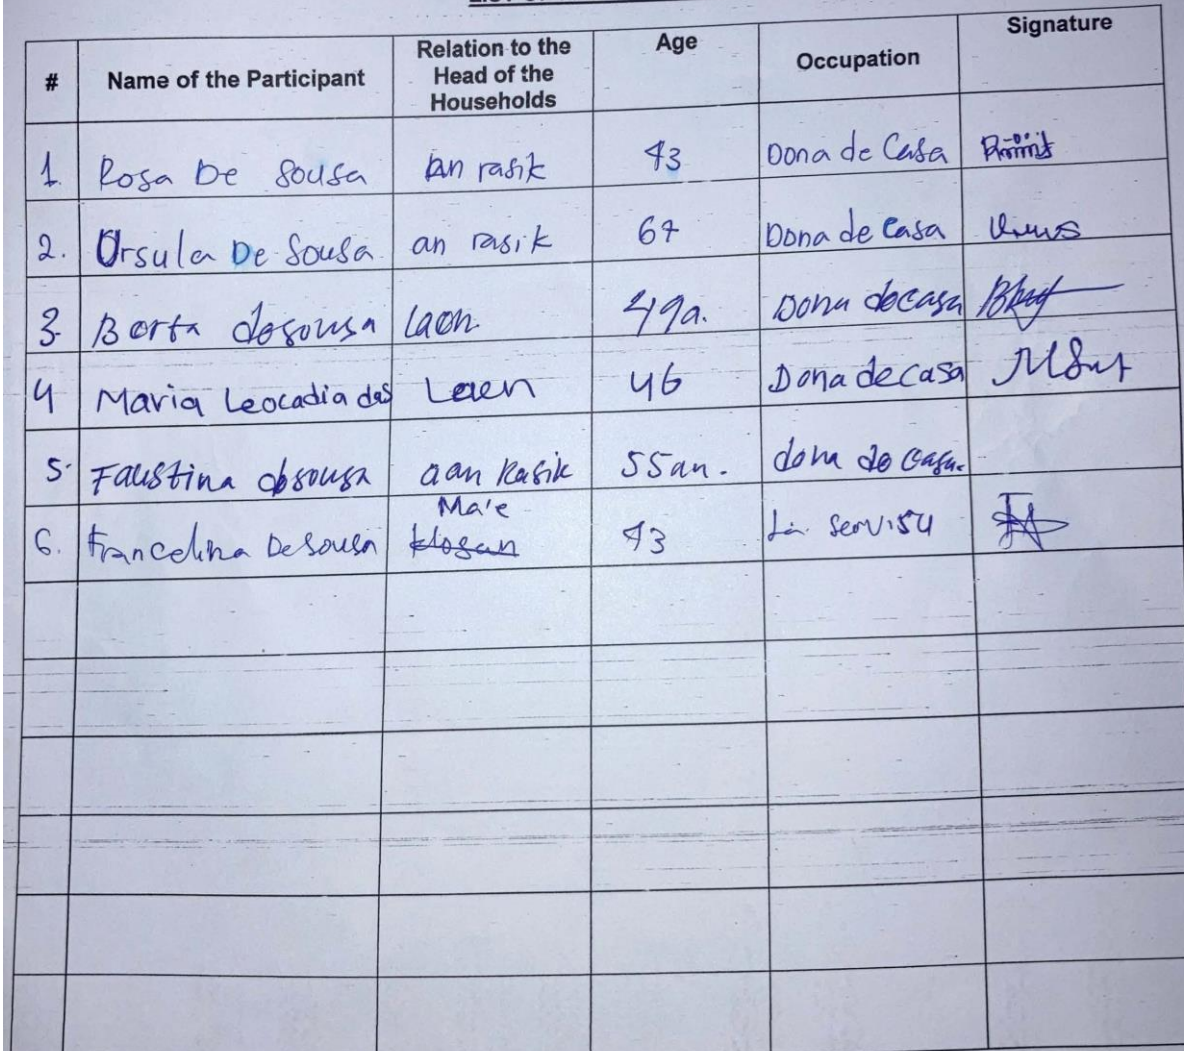 # Name of the Participant Relation to the Head of the Households Age Occupation Signature
1. Rosa De Sousa an rasik 43 Dona de Casa
2. Ursula De Sousa an rasik 67 Dona de Casa
3. Berta desousa laen 49a. Dona decasa
4 Maria Leocadia das Laen 46 Dona decasa
5. Faustina desousa aan Rasik 55an. dona de casa.
Ma'e
6. Francelina De Sousa klosan 43 La servisu